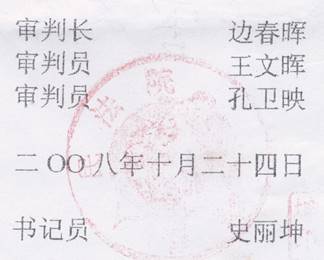 审判长 边春晖
审判员 王文晖
审判员 孔卫映
二〇〇八年十月二十四日
书记员 史丽坤